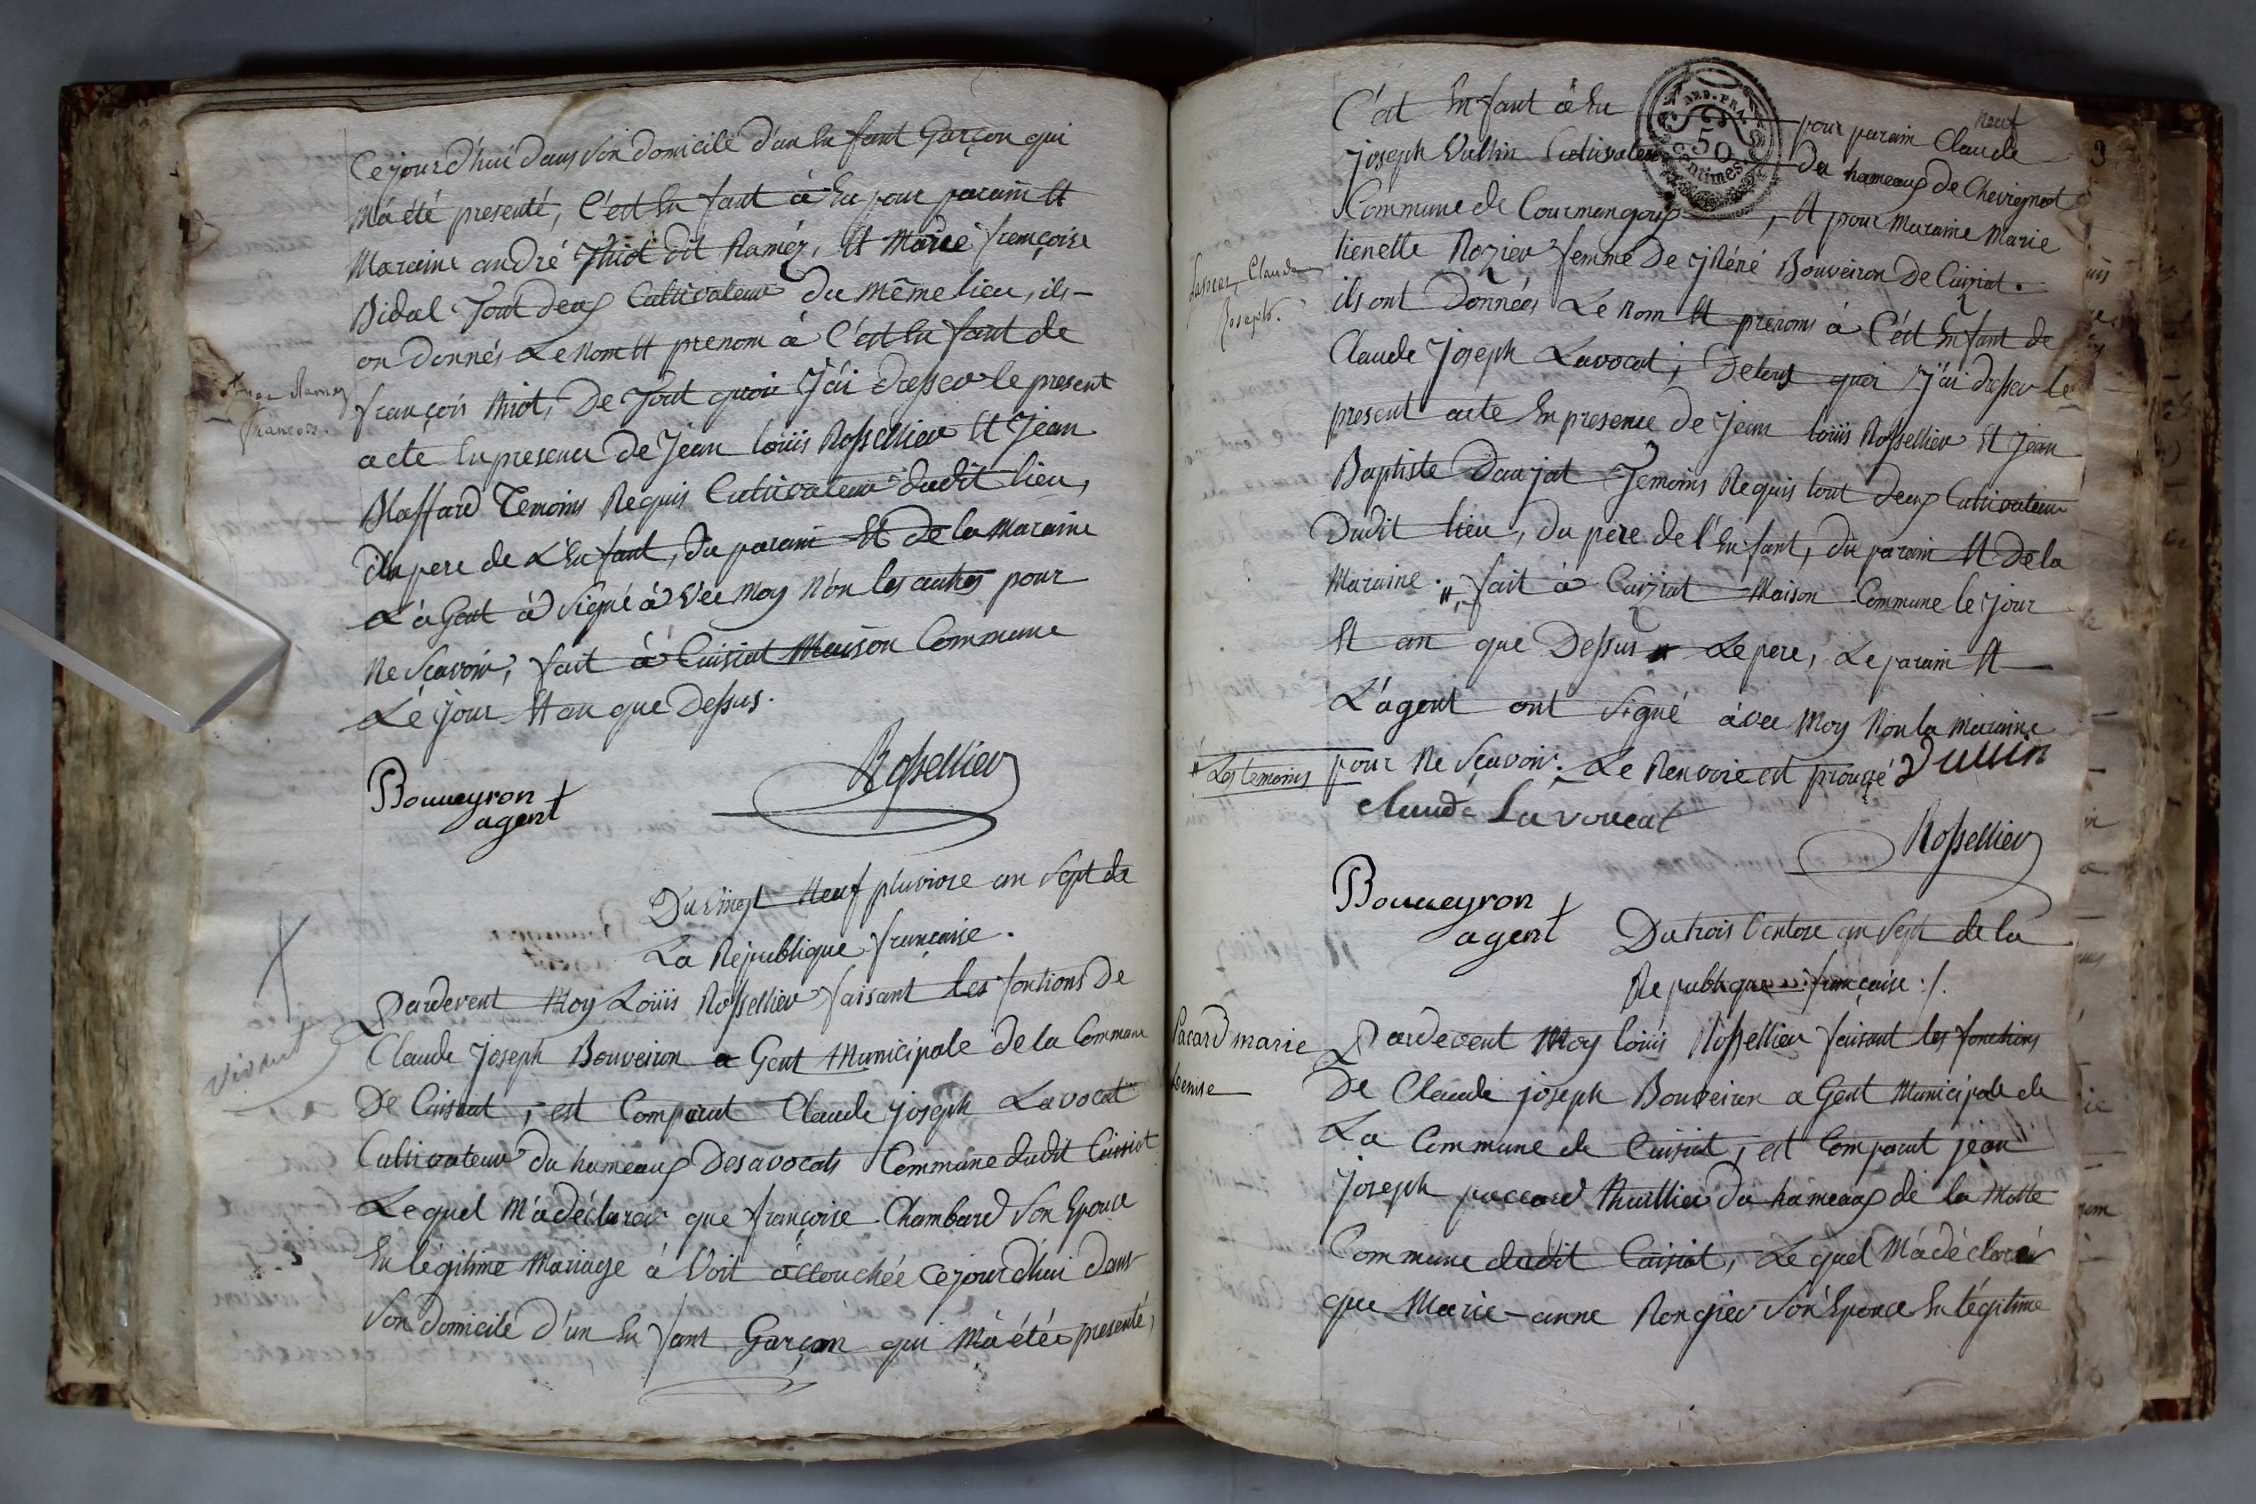 Ce jourd'hui dans son domicile d'un Enfant Garçon qui
M'a été presenté, C'est Enfant à Eu pour parain Et
Maraine andré Thiot dit Raméz, Et Marie françoise
Bidal Tout deux Cultivateur du même lieu, ils-
on donnés Le nom Et prenom à C'est Enfant de
françois thiot, De Tout quoi J'ai dresser le present
françois.
acte En presence de Jean loüis Rossellier Et Jean
Blaffard Temoins Requis Cultivateur dudit lieu,
du pere de L'Enfant, du parain Et De la Maraine
L'àGent à Signé àvéc Moy Non les autres pour
Ne Sçavoir, fait à Cuisiat Maison Commune
Le jour Et an que Dessus.
Rossellier
Bouveyron
agent
Du vingt Neuf pluviose an Sept de
La République françoise.
Pardevent Moy Loüis Rossellier faisant les fontions De
Claude Joseph Bouveiron aGent Municipale de la Commune
De Cuisiat, est Comparut Claude joseph Lavocat
vivant
Cultivateur du hameaux Des avocats Commune dudit Cuisiat
Lequel M'à déclarer que françoise Chambard Son Epouce
En légitime Mariage à Voit àccouchée Ce jourd'hui dans
Son domicile d'un Enfant Garçon qui M'à étée presenté,
RÉP. FRA.
50
centimes
neuf
9
C'est Enfant à Eu pour parain Claude
joseph Vullin Cultivateur du hameaux de Chevignat
Commune de Courmangoux, Et pour Maraine Marie
tienette Rozier femme De jRéné Bouveiron De Cuisiat.
Claude
Joseph.
ils ont Données Le nom Et prenoms à C'ést Enfant de
Claude Joseph Lavocat; De tous quoi j'ai dresser le
present acte En presence de Jean loüis Rossellier Et Jean
Baptiste Daujat Temoins Requis tout deux Cultivateur
Dudit lieu, du pere de l'Enfant, du parain Et De la
Maraine. fait à Cuisiat Maison Commune le jour
Et an que Dessus Le pere, Le parain Et
L'àgent ont Signé àvec Moy Non la Maraine
Les temoins
pour Ne Sçavoir. Le Renvoie est prouvé Vullin
claude Lavoucat
Rossellier
Bouveyron
agent
Du trois Ventose an Sept de la
Republique françoise ./.
Pacard marie
Denise
Pardevent Moy loüis Rossellier faisant les fonctions
De Claude joseph Bouveiron aGent Municipale de
La Commune de Cuisiat, est Comparut jean
Joseph paccard thuillier du hameaux de la Motte
Commune dudit Cuisiat, Le quel M'à déclarér
que Marie-anne Rongier Son Epouce En légitime